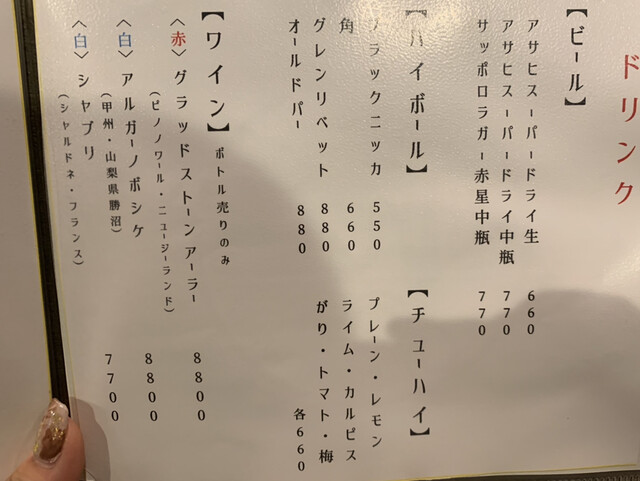 ドリンク
【ビール】
アサヒスーパードライ生 660
アサヒスーパードライ中瓶 770
サッポロラガー赤星中瓶 770
【ハイボール】
ブラックニッカ 550
角 660
グレンリベット 880
オールドパー 880
【チューハイ】
プレーン・レモン
ライム・カルピス
がり・トマト・梅 各660
【ワイン】ボトル売りのみ
〈赤〉グラッドストーンアーラー 8800
(ピノノワール・ニュージーランド)
〈白〉アルガーノボシケ 8800
(甲州・山梨県勝沼)
〈白〉シャブリ 7700
(シャルドネ・フランス)